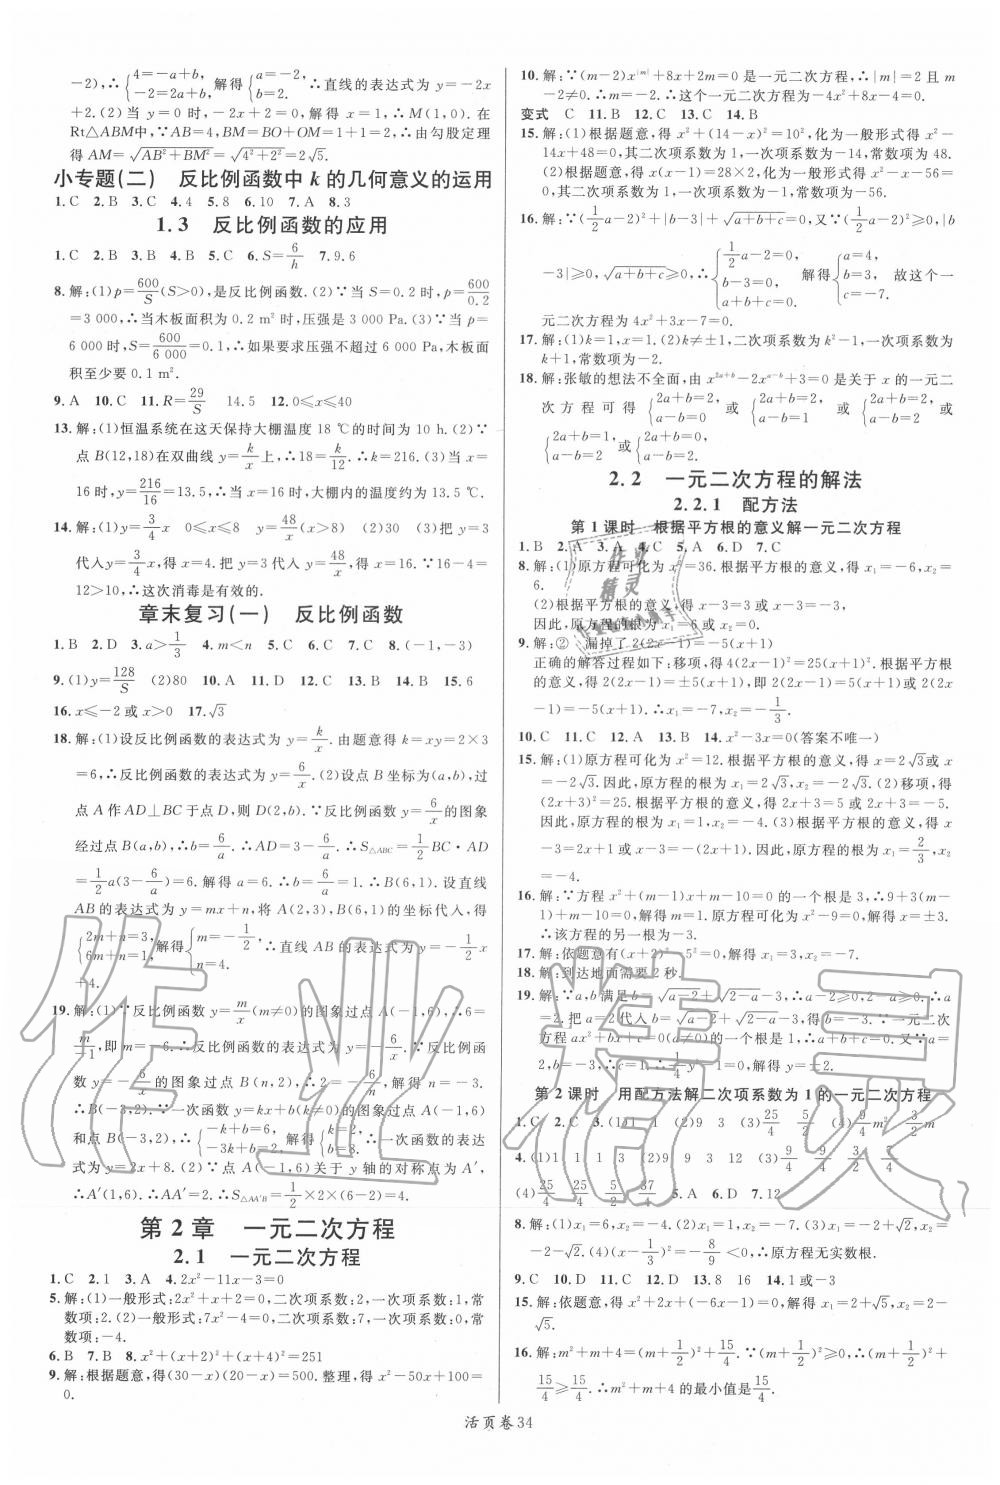 -2),∴{4=-a+b, -2=2a+b. 解得{a=-2, b=2. ∴直线的表达式为 y=-2x
+2.(2)当 y=0 时,-2x+2=0,解得 x=1,∴M(1,0).在
Rt△ABM中,∵AB=4,BM=BO+OM=1+1=2,∴由勾股定理
得 AM=√(AB²+BM²)=√(4²+2²)=2√5.
小专题(二) 反比例函数中 k 的几何意义的运用
1.C 2.B 3.C 4.4 5.8 6.10 7.A 8.3
1.3 反比例函数的应用
1.C 2.B 3.B 4.B 5.C 6.S=6/h 7.9.6
8.解:(1)p=600/S(S>0),是反比例函数.(2)∵当 S=0.2 时,p=600/0.2
=3 000,∴当木板面积为 0.2 m² 时,压强是 3 000 Pa.(3)∵当 p=
6 000时,S=600/6 000=0.1,∴如果要求压强不超过 6 000 Pa,木板面
积至少要 0.1 m².
9.A 10.C 11.R=29/S 14.5 12.0≤x≤40
13.解:(1)恒温系统在这天保持大棚温度 18 ℃的时间为 10 h.(2)∵
点 B(12,18)在双曲线 y=k/x上,∴18=k/12.∴k=216.(3)当 x=
16时,y=216/16=13.5,∴当 x=16 时,大棚内的温度约为 13.5 ℃.
14.解:(1)y=3/4x 0≤x≤8 y=48/x(x>8) (2)30 (3)把 y=3
代入 y=3/4x,得 x=4.把 y=3 代入 y=48/x,得 x=16.∵16-4=
12>10,∴这次消毒是有效的.
章末复习(一) 反比例函数
1.B 2.D 3.a>1/3 4.m<n 5.B 6.C 7.C 8.(-1,-3)
9.(1)y=128/S (2)80 10.A 11.D 12.C 13.B 14.B 15.6
16.x≤-2或x>0 17.√3
18.解:(1)设反比例函数的表达式为 y=k/x.由题意得 k=xy=2×3
=6,∴反比例函数的表达式为 y=6/x.(2)设点 B 坐标为(a,b),过
点 A 作 AD⊥BC于点 D,则 D(2,b).∵反比例函数 y=6/x的图象
经过点 B(a,b),∴b=6/a.∴AD=3-6/a.∴S△ABC=1/2BC·AD
=1/2a(3-6/a)=6.解得 a=6.∴b=6/a=1.∴B(6,1).设直线
AB 的表达式为 y=mx+n,将 A(2,3),B(6,1)的坐标代入,得
{2m+n=3, 6m+n=1. 解得{m=-1/2, n=4. ∴直线 AB 的表达式为 y=-1/2x
+4.
19.解:(1)∵反比例函数 y=m/x(m≠0)的图象过点 A(-1,6),∴6=
m/-1,即 m=-6.∴反比例函数的表达式为 y=-6/x.∵反比例函
数 y=-6/x的图象过点 B(n,2),∴2=-6/n,解得 n=-3.
∴B(-3,2).∵一次函数 y=kx+b(k≠0)的图象过点 A(-1,6)
和点 B(-3,2),∴{-k+b=6, -3k+b=2. 解得{k=2, b=8. ∴一次函数的表达
式为 y=2x+8.(2)∵点 A(-1,6)关于 y 轴的对称点为 A′,
∴A′(1,6).∴AA′=2.∴S△AA′B=1/2×2×(6-2)=4.
第 2 章 一元二次方程
2.1 一元二次方程
1.C 2.1 3.A 4.2x²-11x-3=0
5.解:(1)一般形式:2x²+x+2=0,二次项系数:2,一次项系数:1,常
数项:2.(2)一般形式:7x²-4=0,二次项系数:7,一次项系数:0,常
数项:-4.
6.B 7.B 8.x²+(x+2)²+(x+4)²=251
9.解:根据题意,得(30-x)(20-x)=500.整理,得 x²-50x+100=
0.
10.解:∵(m-2)x^|m|+8x+2m=0 是一元二次方程,∴|m|=2 且
m-2≠0.∴m=-2.∴这个一元二次方程为-4x²+8x-4=0.
变式 C 11.B 12.C 13.C 14.B
15.解:(1)根据题意,得 x²+(14-x)²=10²,化为一般形式得 x²-
14x+48=0,其二次项系数为 1,一次项系数为-14,常数项为 48.
(2)根据题意,得 x(x-1)=28×2,化为一般形式得 x²-x-56=
0,其二次项系数为 1,一次项系数为-1,常数项为-56.
16.解:∵(1/2a-2)²+|b-3|+√(a+b+c)=0,又∵(1/2a-2)²≥0,|b
-3|≥0,√(a+b+c)≥0,∴{1/2a-2=0, b-3=0, a+b+c=0. 解得{a=4, b=3, c=-7. 故这个一
元二次方程为 4x²+3x-7=0.
17.解:(1)k=1,x=1.(2)k≠±1,二次项系数为 k²-1,一次项系数为
k+1,常数项为-2.
18.解:张敏的想法不全面,由 x^(2a+b)-2x^(a-b)+3=0 是关于 x 的一元二
次方程可得{2a+b=2, a-b=2 或{2a+b=2, a-b=1 或{2a+b=2, a-b=0 或
{2a+b=1, a-b=2 或{2a+b=0, a-b=2.
2.2 一元二次方程的解法
2.2.1 配方法
第 1 课时 根据平方根的意义解一元二次方程
1.B 2.A 3.A 4.C 5.A 6.D 7.C
8.解:(1)原方程可化为 x²=36.根据平方根的意义,得 x₁=-6,x₂=
6.
(2)根据平方根的意义,得
因此,原方程的根为 x₁=6 或 x₂=0.
9.解:② 漏掉了 2(2x-1)=-5(x+1)
正确的解答过程如下:移项,得 4(2x-1)²=25(x+1)².根据平方根
的意义,得 2(2x-1)=±5(x+1),即 2(2x-1)=5(x+1)或 2(2x-
1)=-5(x+1).∴x₁=-7,x₂=-1/3.
10.C 11.C 12.A 13.B 14.x²-3x=0(答案不唯一)
15.解:(1)原方程可化为 x²=12.根据平方根的意义,得 x=2√3或 x
=-2√3.因此,原方程的根为 x₁=2√3,x₂=-2√3.(2)移项,得
(2x+3)²=25.根据平方根的意义,得 2x+3=5 或 2x+3=-5.
因此,原方程的根为 x₁=1,x₂=-4.(3)根据平方根的意义,得 x-
3=2x+1 或 x-3=-(2x+1).因此,原方程的根为 x₁=2/3,x₂
=-4.
16.解:∵方程 x²+(m-1)x+m-10=0 的一个根是 3,∴9+3(m-
1)+m-10=0,解得 m=1.原方程可化为 x²-9=0,解得 x=±3.
∴该方程的另一根为-3.
17.解:依题意有(x+2)²-5²=0,解得 x₁=3,x₂=-7.
18.解:到达地面需要 2 秒.
19.解:∵a,b满足 b=√(a-2)+√(2-a)-3,∴a-2≥0,2-a≥0.∴a
=2.把 a=2 代入 b=√(a-2)+√(2-a)-3,得 b=-3.∵一元二次
方程 ax²+bx+c=0(a≠0)的一个根是 1,∴a+b+c=0.又∵a=
2,b=-3,∴c=1.∴1/4y²-1=0,解得 y=±2.
第 2 课时 用配方法解二次项系数为 1 的一元二次方程
1.C 2.C 3.(1)1 1 (2)9 3 (3)25/4 5/2 (4)9/4m² 3/2m
4.(1)1 1 1 3 (2)9 9 3 12 (3)9/4 9/4 3/2 17/4
(4)25/4 25/4 5/2 37/4 5.A 6.D 7.12
8.解:(1)x₁=0,x₂=-10.(2)x₁=-2+√5,x₂=-2-√5.(3)x₁=
-2,x₂=5.(4)(x-1/3)²=-8/9<0,∴原方程无实数根.
9.C 10.D 11.D 12.A 13.8 16 14.1或-3
15.解:依题意,得 x²+2x+(-6x-1)=0,解得 x₁=2+√5,x₂=2-
√5.
16.解:m²+m+4=(m+1/2)²+15/4.∵(m+1/2)²≥0,∴(m+1/2)²+
15/4≥15/4.∴m²+m+4 的最小值是15/4.
活页卷34
作业精灵